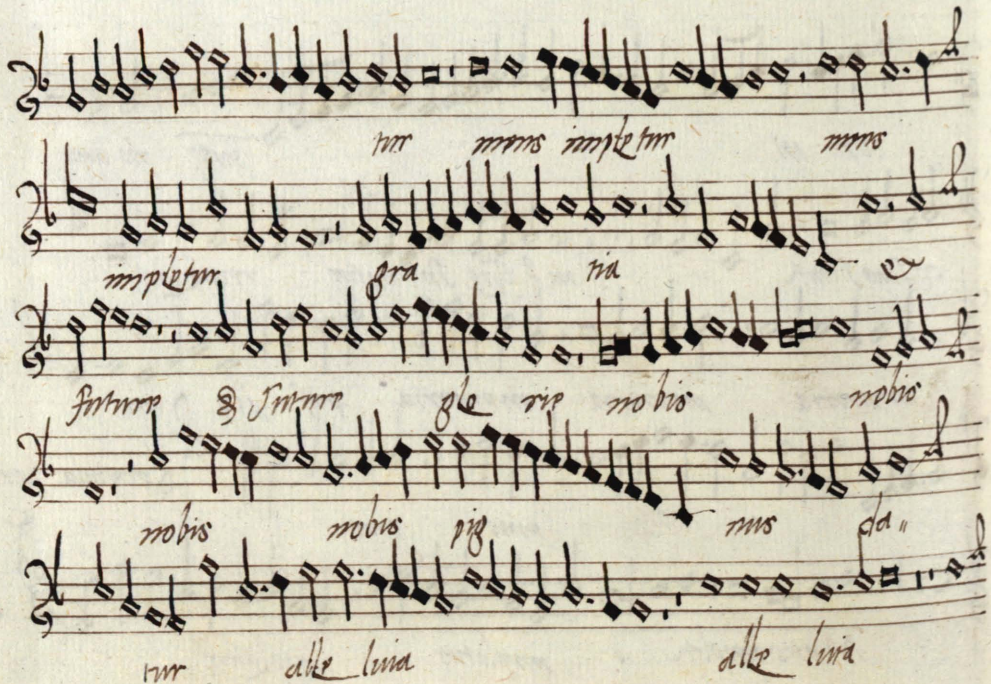 tur mens impletur mens
impletur gra tia &
future & future glo rie nobis nobis
nobis nobis pig nus da"
tur alle luia alle luia